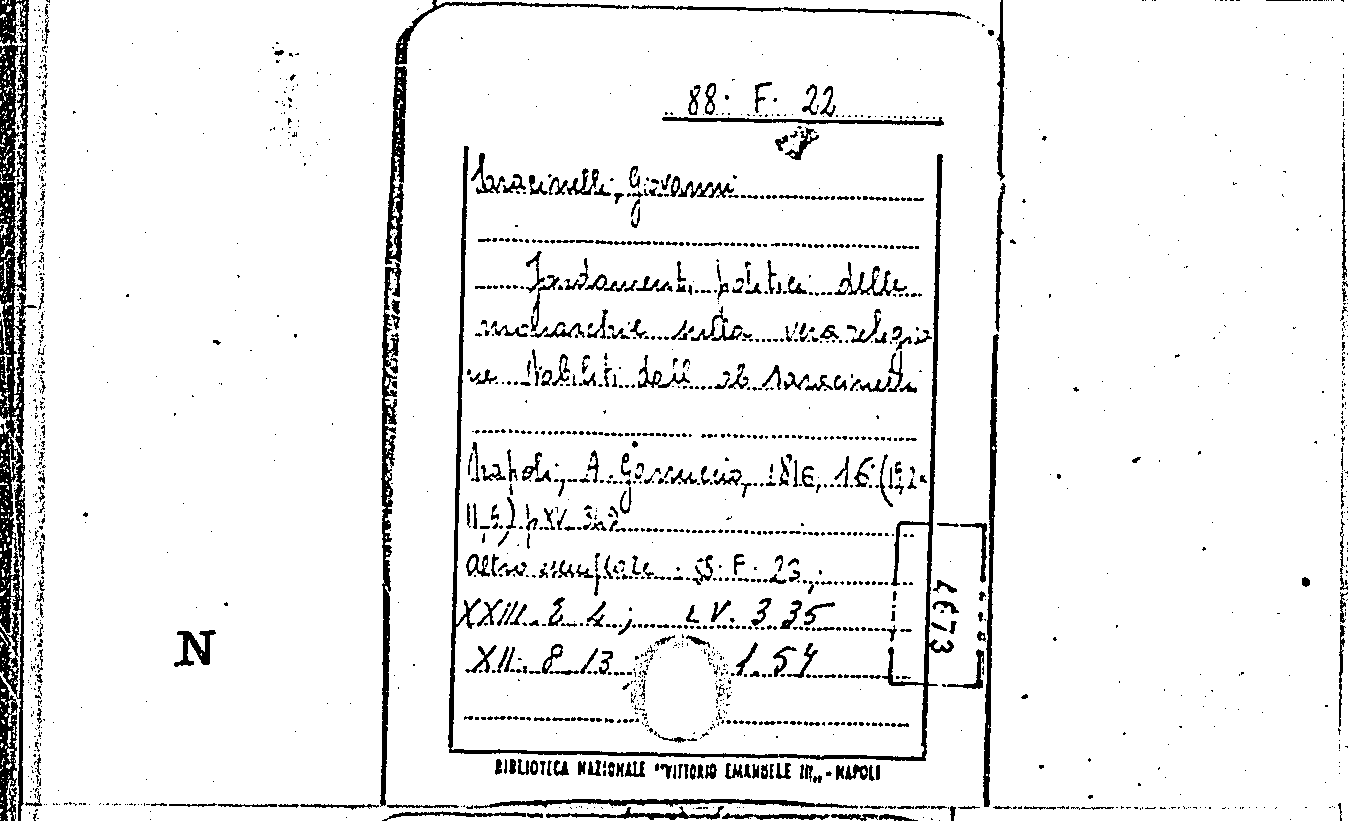 88. F. 22
Saracinelli, Giovanni
Fondamenti politici delle
monarchie sulla vera religio
ne stabiliti dall' ab Saracinelli
Napoli, A. Garruccio, 1816, 16° (
11,5) p XV.
altro esemplare F. 23;
XXIII. E 4; LV. 3 35
XII. 8 13 1.54
4673
N
BIBLIOTECA NAZIONALE "VITTORIO EMANUELE III„ - NAPOLI